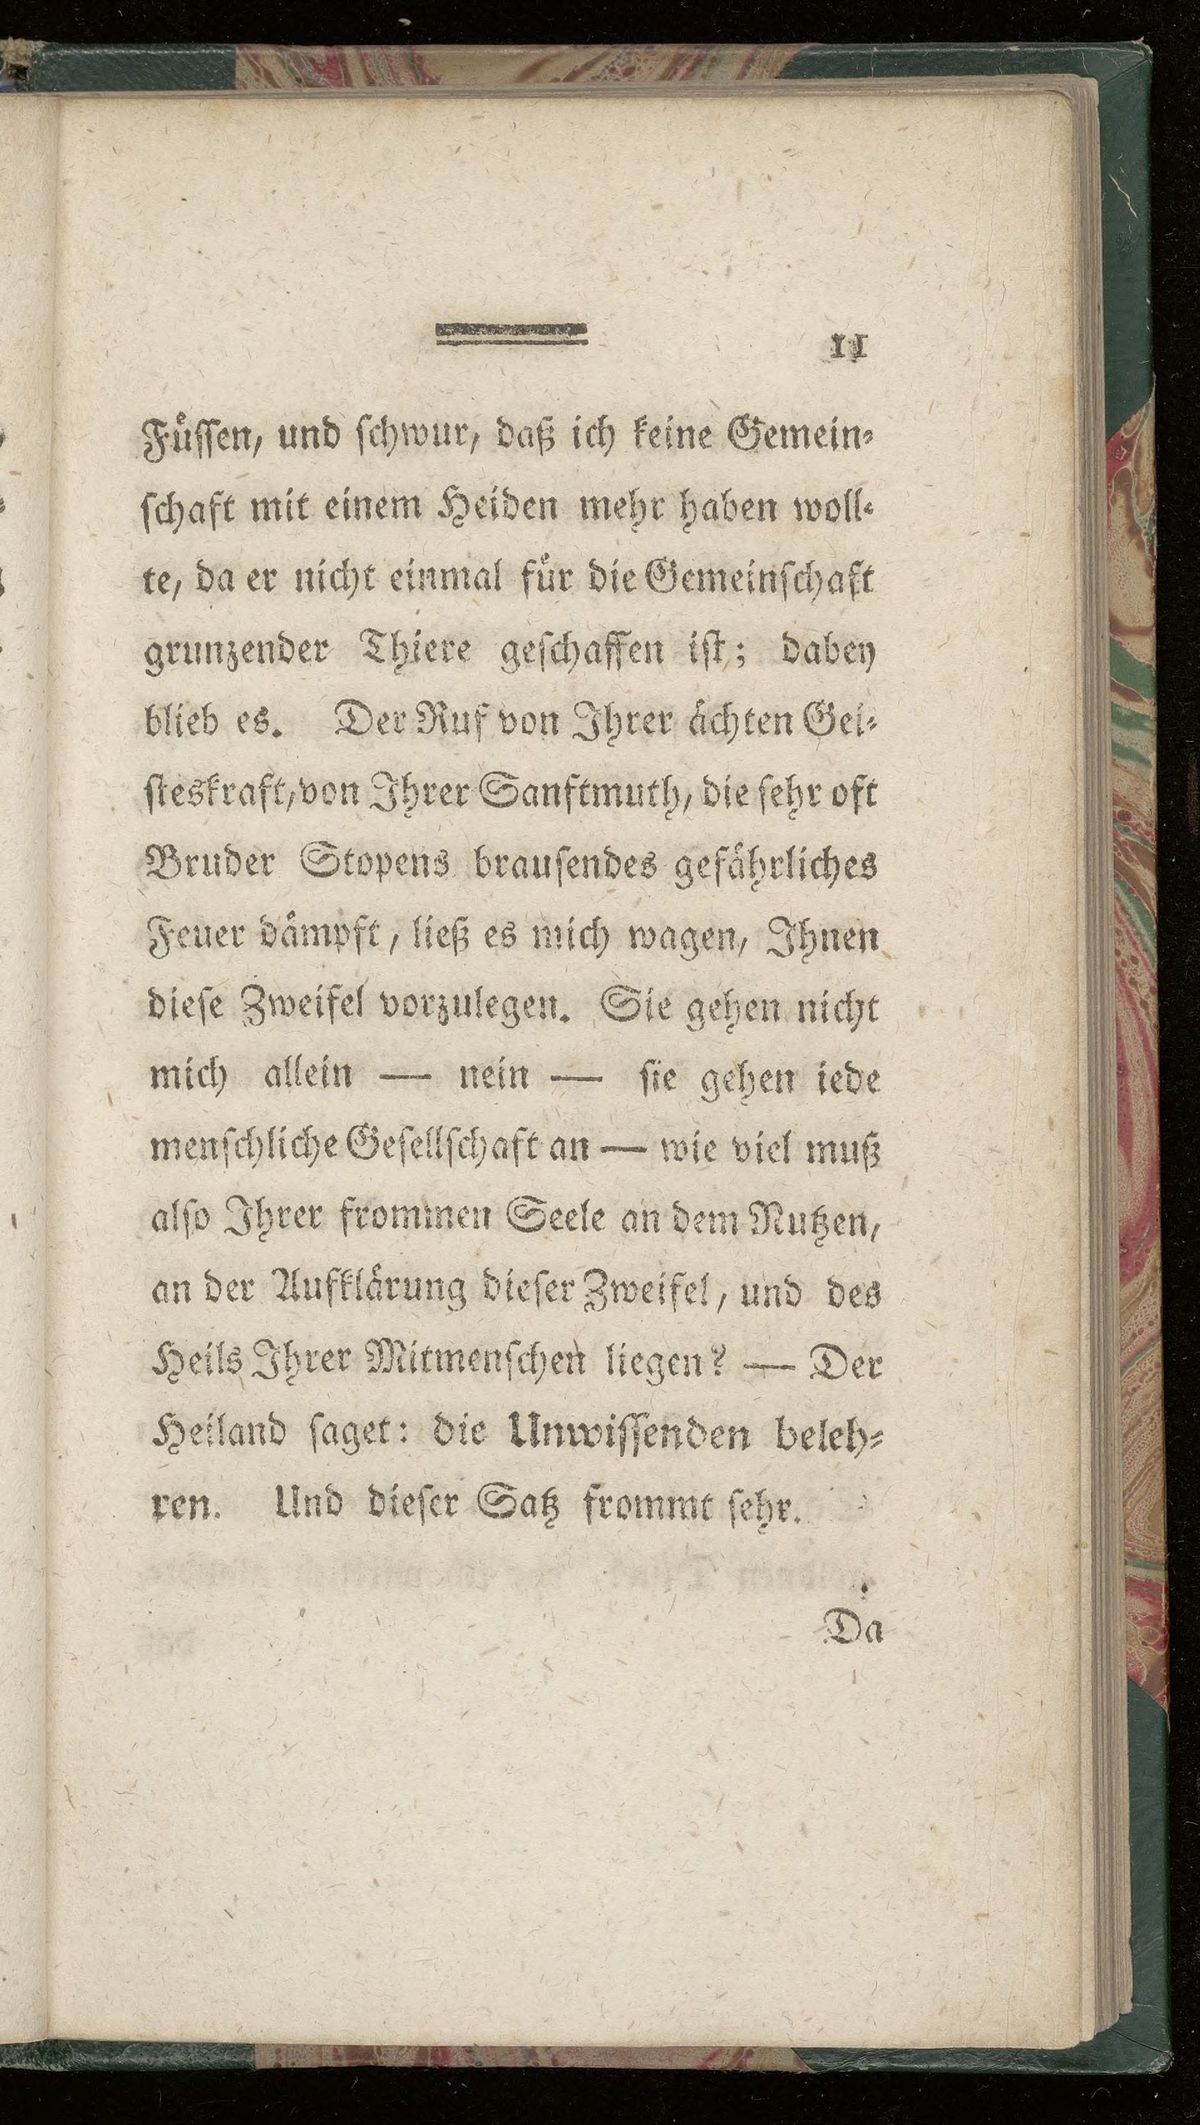 11
Fuͤſſen, und ſchwur, daß ich keine Gemein⸗
ſchaft mit einem Heiden mehr haben woll⸗
te, da er nicht einmal fuͤr die Gemeinſchaft
grunzender Thiere geſchaffen iſt; dabey
blieb es. Der Ruf von Ihrer aͤchten Gei⸗
ſteskraft, von Ihrer Sanftmuth, die ſehr oft
Bruder Stopens brauſendes gefaͤhrliches
Feuer daͤmpft, ließ es mich wagen, Ihnen
dieſe Zweifel vorzulegen. Sie gehen nicht
mich allein — nein — ſie gehen iede
menſchliche Geſellſchaft an — wie viel muß
alſo Ihrer frommen Seele an dem Nutzen,
an der Aufklaͤrung dieſer Zweifel, und des
Heils Ihrer Mitmenſchen liegen? — Der
Heiland ſaget: die Unwiſſenden beleh⸗
ren. Und dieſer Satz frommt ſehr.
Da